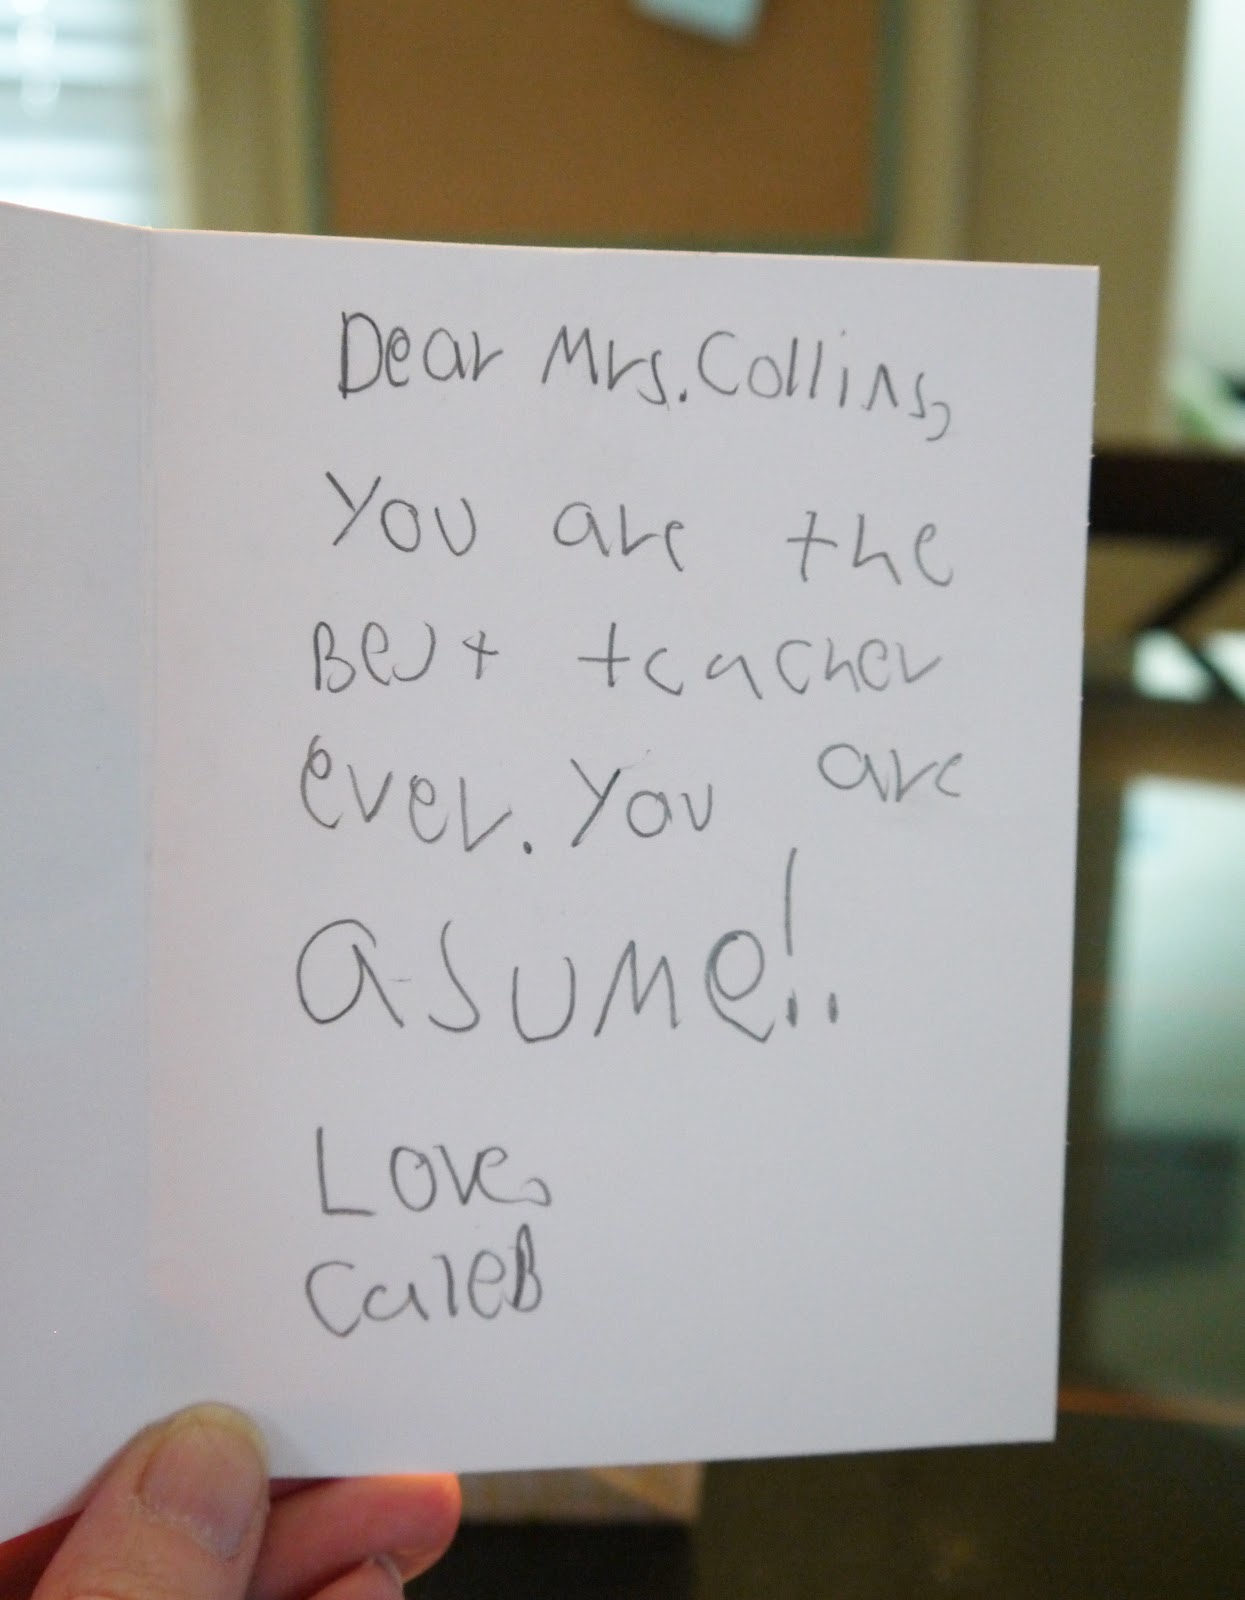 Dear Mrs. Collins,
You are the
Best teacher
ever. You are
asume!.
Love,
CaleB